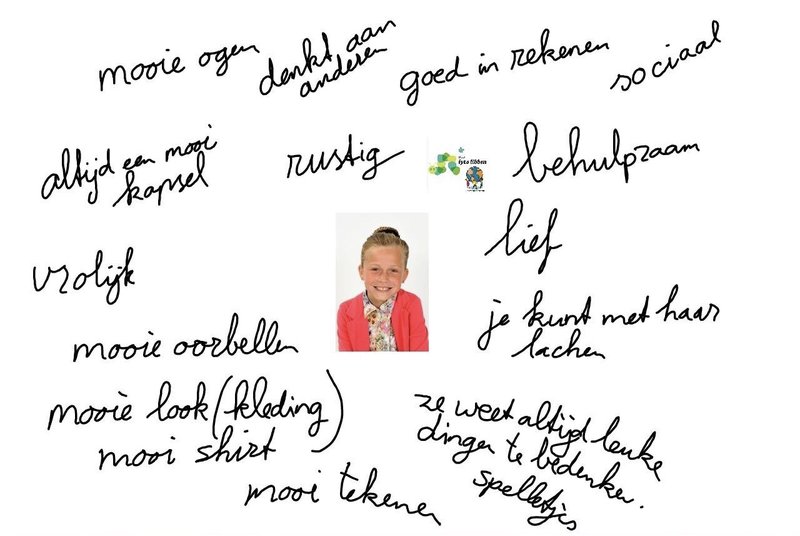 mooie ogen
denkt aan
anderen
goed in rekenen
sociaal
altijd een mooi
kapsel
rustig
behulpzaam
lief
vrolijk
je kunt met haar
lachen
mooie oorbellen
mooie look (kleding)
mooi shirt
ze weet altijd leuke
dingen te bedenken.
spelletjes
mooi tekenen